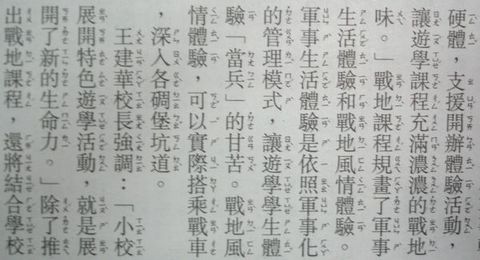 硬體，支援開辦體驗活動，
讓遊學課程充滿濃濃的戰地
味。」戰地課程規畫了軍事
生活體驗和戰地風情體驗。
軍事生活體驗是依照軍事化
的管理模式，讓遊學學生體
驗「當兵」的甘苦。戰地風
情體驗，可以實際搭乘戰車
，深入各碉堡坑道。
王建華校長強調：「小校
展開特色遊學活動，就是展
開了新的生命力。」除了推
出戰地課程，還將結合學校